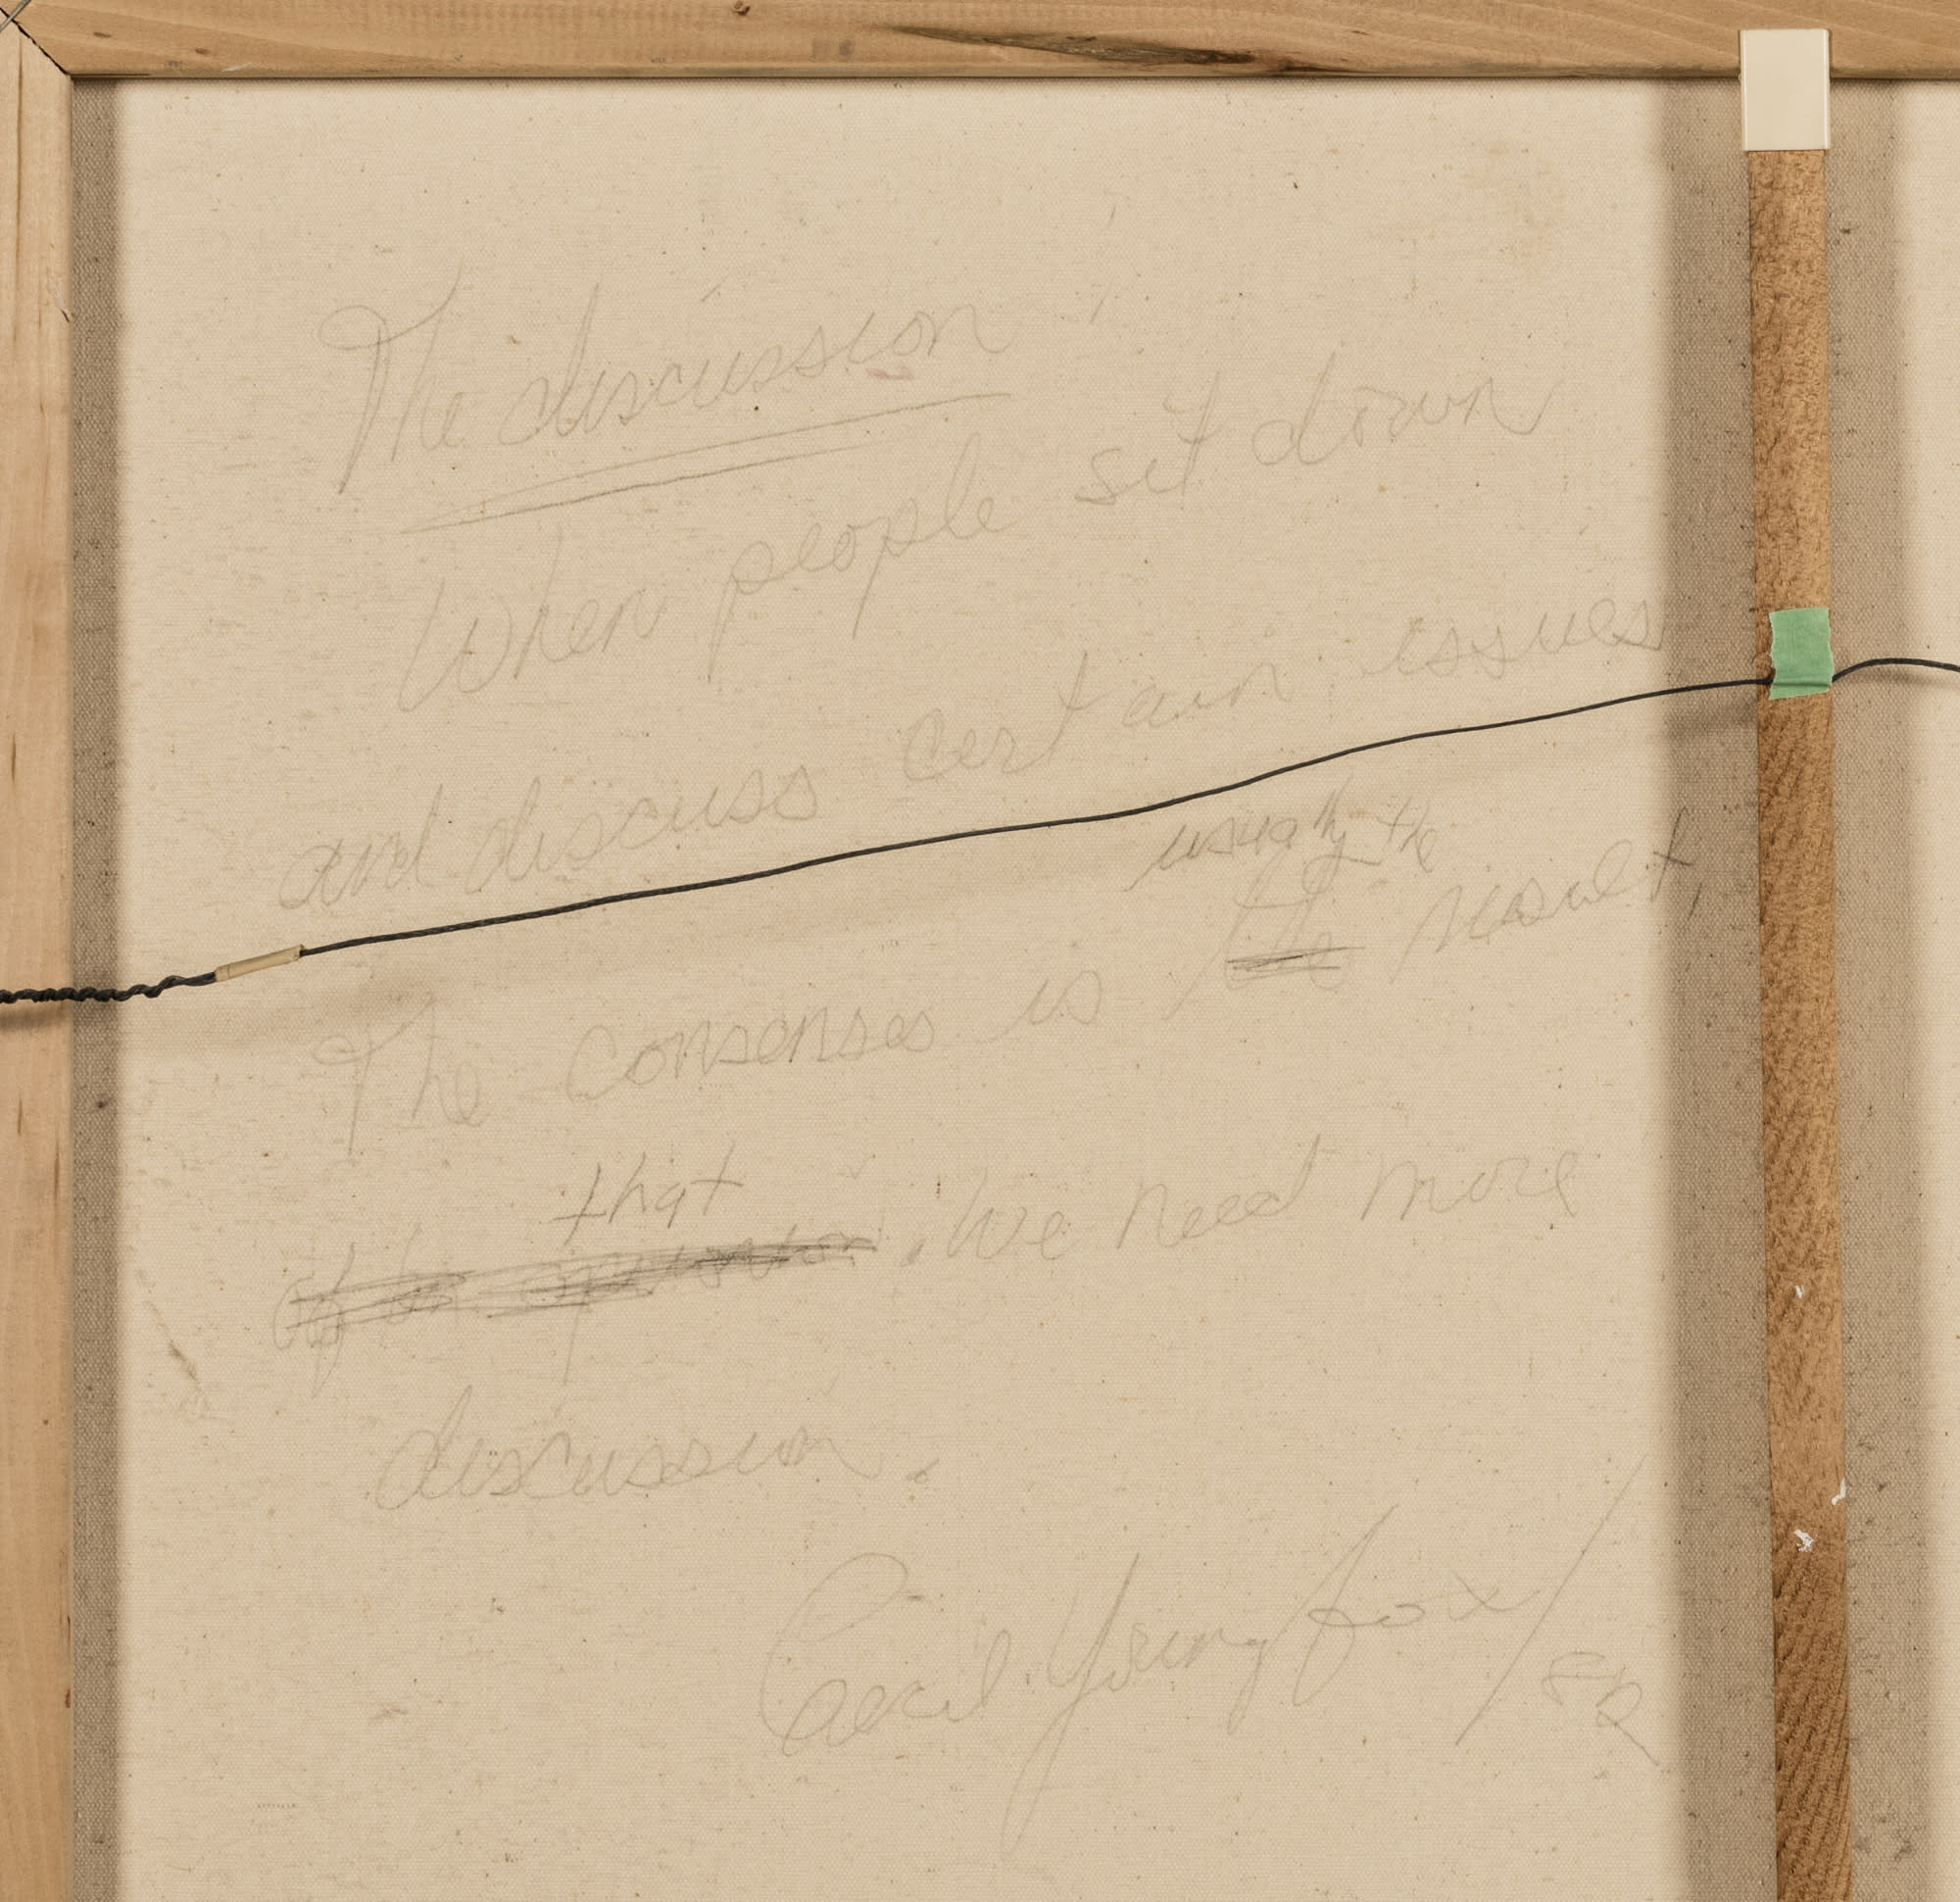 The discussion
When people sit down
and discuss certain issues
usually the
The consenses is the result,
that
of . We need more
discussion.
Cecil Youngfox / 82